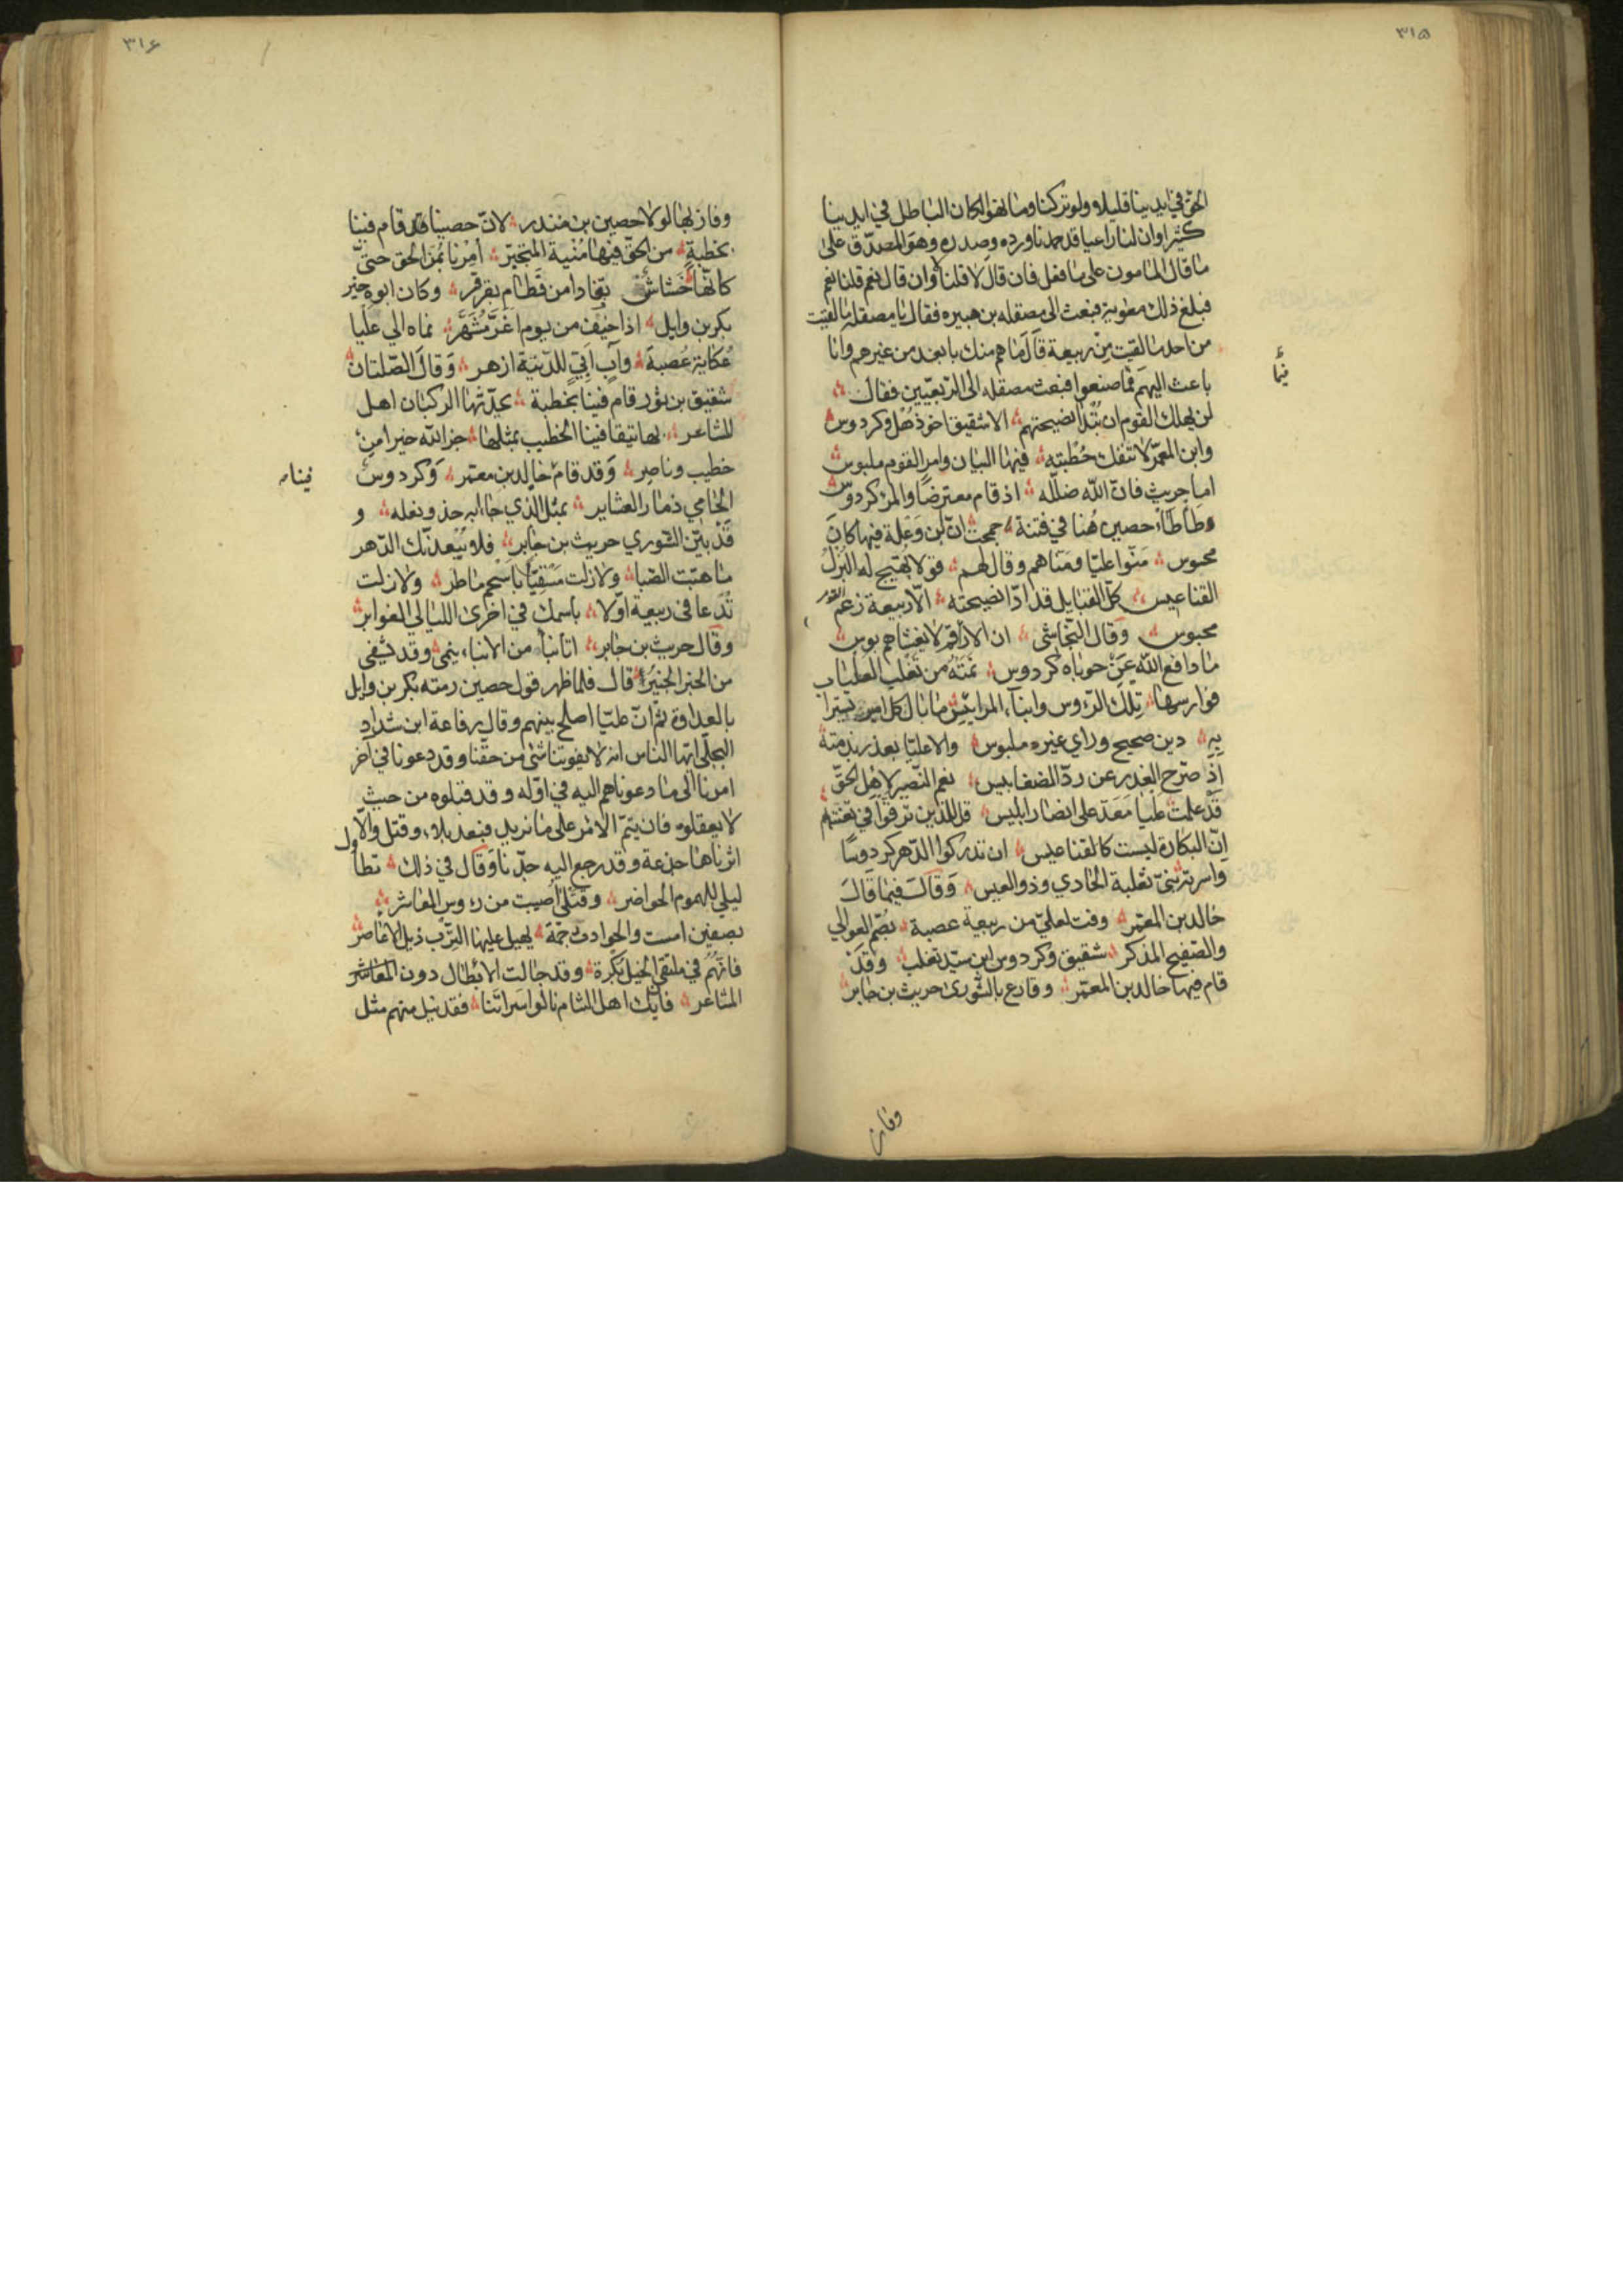 ٣١٥
الحق في ايدينا قليلا ولو تركنا وما نهوا لكان الباطل في ايدينا
كثيرا وان لنا راعيا قد حمدنا ورده وصدره وهو المصدّق على
ما قال المامون على ما فعل فان قال لا قلنا لا وان قال نعم قلنا نعم
فبلغ ذلك معوية فبعث الى مصقله بن هبيره فقال يا مصقله ما لقيت
من احد ما لقيت من ربيعة قال ما هم منك بابعد من غيرهم وانا
باعث اليهم فيما صنعوا فبعث مصقله الى الربعيّين فقال
لن يهلك القوم ان تبدا نصيحتهم الا شقيق اخو ذهل وكردوس
وابن المعمّر لا تنفك خطبته فيها البيان وامر القوم ملبوس
اما حريث فان الله ضلّله اذ قام معترضا والمرء كردوس
وطأطأ حصين هنا في فتنة جمحت ان ابن وعلة فيها كان
محسوس منّوا عليّا ومنّاهم وقال لهم قولا يهيج له البزل
القناعيس كل القبايل قد ادّا نصيحته الا ربيعة زعم القوم
محبوس وقال النّجاشي ان الاراقم لا يغشاهم بوس
ما دافع الله عن حوباه كردوس نمته من تغلب الغلباب
فوارسها تلك الروس وابناء المرائيس ما بال كل امير يستراب
به دين صحيح وراي غير ملبوس والا عليّا بعذر بذمته
اذ صرّح الغدر عن ردّ الضغابيس نعم النّصير لاهل الحقّ
قد علمت عليا معد على انصار ابليس قل للذين ترقّوا في تعنته
انّ البكارة ليست كالقناعيس ان تدركوا الدّهر كردوسا
واسرته بني ثعلبة الحادي وذو العيس وقال فيما قال
خالد بن المعمر وفت لعلي من ربيعة عصبة بصّم العوالي
والصفيح المذكر شقيق وكردوس ابن سيّد تغلب وقد
قام فيها خالد بن المعمر وقارع بالشورى حريث بن جابر
وفاز
٣١٤
وفاز بها لولا حصين بن منذر لانّ حصينا قد قام فينا
بخطبة من الحق فيها منية المتجبّر امرنا بمرّ الحق حتى
كانها خشاش تفادا من قطام بقرقر وكان ابوه خير
بكر بن وايل اذا خيف من يوم اغرّ مشهّر نماه الى عليا
عكابة عصبة واب ابي للدنية ازهر وقال الصّلتان
شقيق بن ثور قام فينا بخطبة يحدّثها الركبان اهل
المشاعر بها تيقا فينا الخطيب بمثلها جزا الله خيرا من
خطيب وناصر وقد قام خالد بن معمّر وكردوس
فينا
الحامي ذمار العشاير بمثل الّذي جاابه حذو نعله و
قد بيّن الشورى حريث بن جابر فلا يبعدنك الدّهر
ما هبّت الصّبا ولا زلت مسقيّا باسحم ماطر ولا زلت
تدعا في ربيعة اوّلا باسمك في اخرى الليالي الغوابر
وقال حريث بن جابر اتانبا من الانباء ينمى وقد يشفى
من الخبر الخبير قال فلما ظهر قول حصين رمته بكر بن وايل
بالعداوة ثم انّ عليّا اصلح بينهم وقال رفاعة ابن شداد
البجلّي ايها الناس انه لا يفوتنا شى من حقّنا وقد دعونا في اخر
امرنا الى ما دعوناهم اليه في اوّله وقد قبلوه من حيث
لا يعقلون فان يتمّ الامر على ما نريد فبعد بلاء وقتل والا
اثرناها جذعة وقد رجع اليه جدّنا وقال في ذلك تطاول
ليلي للهموم الحواضر وقتلى اصيبت من روس المعاشر
بصفين امست والحوادث جمّة يهيل عليها الترب ذيل الاعاصر
فانهم في ملتقى الخيل بكرة وقد جالت الابطال دون المعاشر
المشاعر فان يك اهل الشام نالوا سراتنا فقد نيل منهم مثل